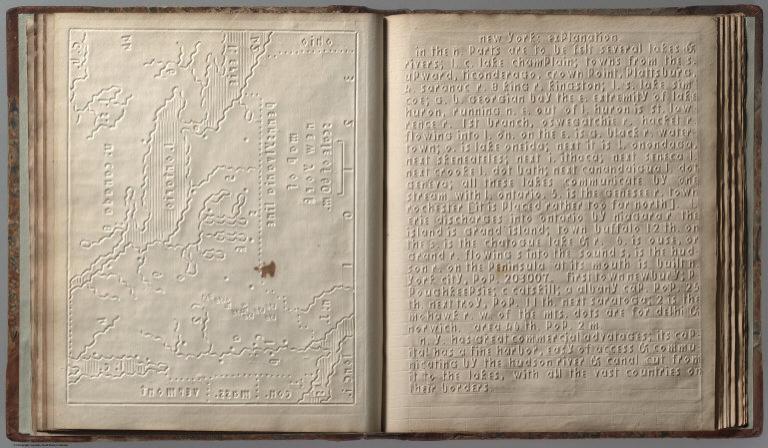 ohio
l. erie
pennsylvania line
map
of
new york
scale 100 m.
l. ontario
u. canada
n.j.
con.
mass.
vermont
new york: explanation
in the n. parts are to be felt several lakes &
rivers; l. c. lake champlain; towns from the s.
upward, ticonderoga, crown point, plattsburg.
s. saranac r. & king r. kingston; l. s. lake sim
coe; g. b. georgian bay the e. extremity of lake
huron, running n. e. out of l. huron is st. law
rence r. 1st branch, oswegatchie r. hacket r.
flowing into l. on. on the e. is a. black r. water
town; o. is lake oneida; next it is l. onondaga,
next skeneateles; next i. ithaca; next seneca l.
next crooke l. dot bath; next canandaigua l. dot
geneva; all these lakes communicate by one
stream with l. ontario. 5. is the genesee r. town
rochester [it is placed rather too far north]. l.
erie discharges into ontario by niagara r. the
island is grand island; town buffalo 12 th. on
the s. is the chatoque lake & r. o. is ouse, or
grand r. flowing s. into the sound s. is the hud
son r. on the peninsula at its mouth is built n.
york city, pop. 203007. first town newbury; p.
poughkeepsie; c. catskill; a. albany cap. pop. 25
th. next troy, pop. 11 th. next saratoga; 2 is the
mohawk r. w. of the mts. dots are for delhi &
norwich. area 46 th. pop. 2 m.
n. y. has great commercial advatages; its cap
ital has a fine harbor, easy of access & commu
nicating by the hudson river & canal cut from
it to the lakes, with all the vast countries on
their borders.